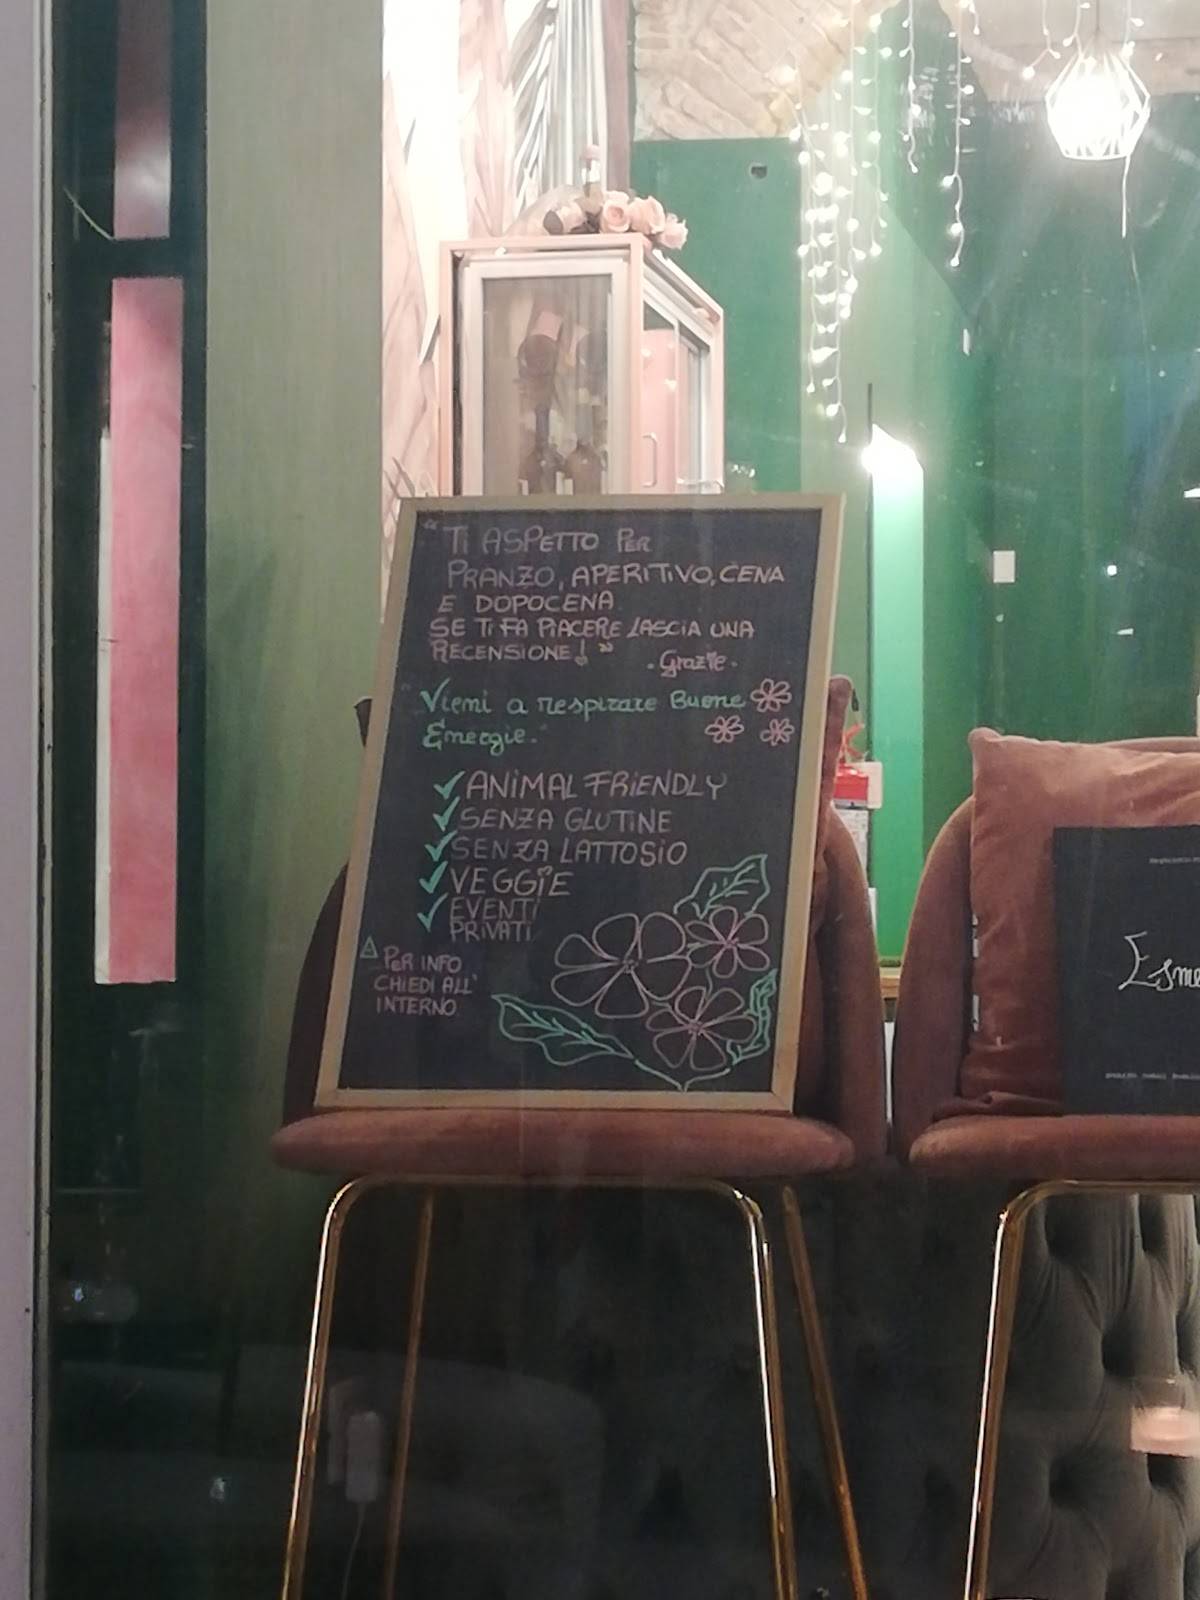 "Ti ASPETTO PER
PRANZO, APERITIVO, CENA
E DOPOCENA
SE Ti FA PIACERE LASCIA UNA
RECENSIONE!"
.Grazie.
"Vieni a respirare Buone
Energie."
✓ ANIMAL FRIENDLY
✓ SENZA GLUTINE
✓ SENZA LATTOSiO
✓ VEGGiE
✓ EVENTi
PRIVATi
PER INFO
CHIEDI ALL'
INTERNO
Esme